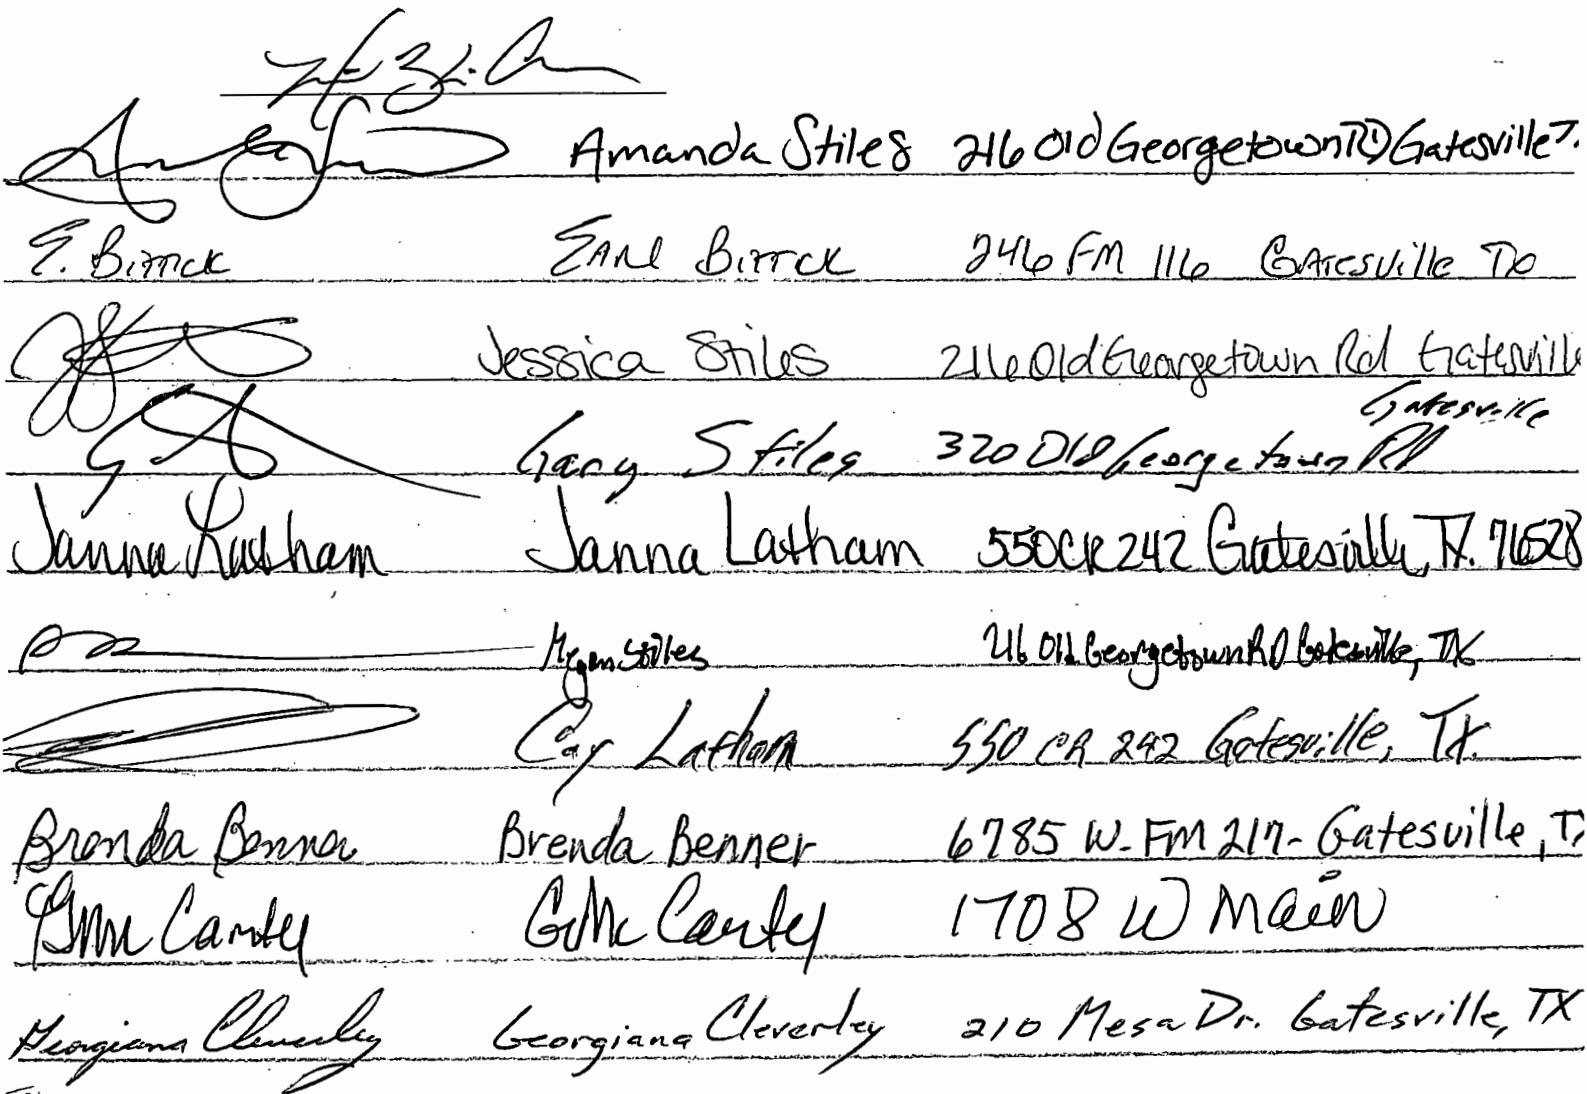 Amanda Stiles 216 Old Georgetown RD Gatesville T
E. Bittick Earl Bittick 246 FM 116 Gatesville TX
Jessica Stiles 216 Old Georgetown Rd Gatesville
Gatesville
Gary Stiles 320 Old Georgetown Rd
Janna Latham Janna Latham 550 CR 242 Gatesville, TX. 76528
Megan Stiles 216 Old Georgetown RD Gatesville, TX
Latham 550 CR 242 Gatesville, TX.
Brenda Benner Brenda Benner 6785 W. FM 217 - Gatesville, T
GMcCarty GMcCarty 1708 W Main
Georgiana Cleverley Georgiana Cleverley 210 Mesa Dr. Gatesville, TX